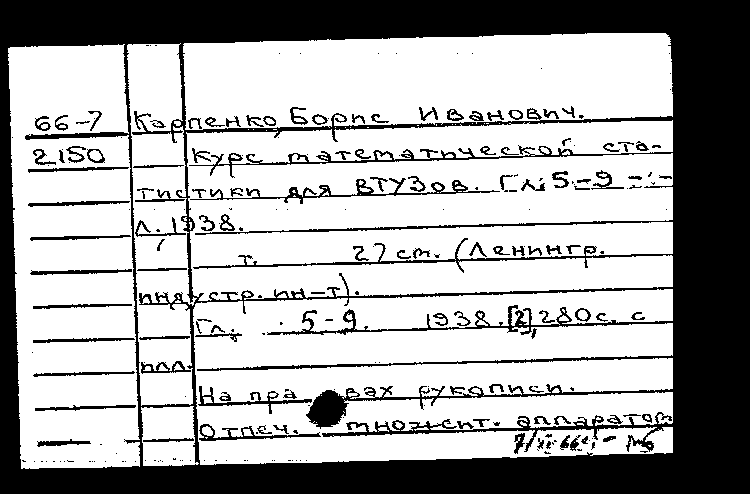 66-7 Карпенко, Борис Иванович.
2150 Курс математической ста-
тистики для ВТУЗов. Гл. 5-9 -:-
Л., 1938.
т. 27 см. (Ленингр.
индустр. ин-т).
Гл. 5-9. 1938. [2], 280 с. с
илл.
На правах рукописи.
Отпеч. множит. аппаратом